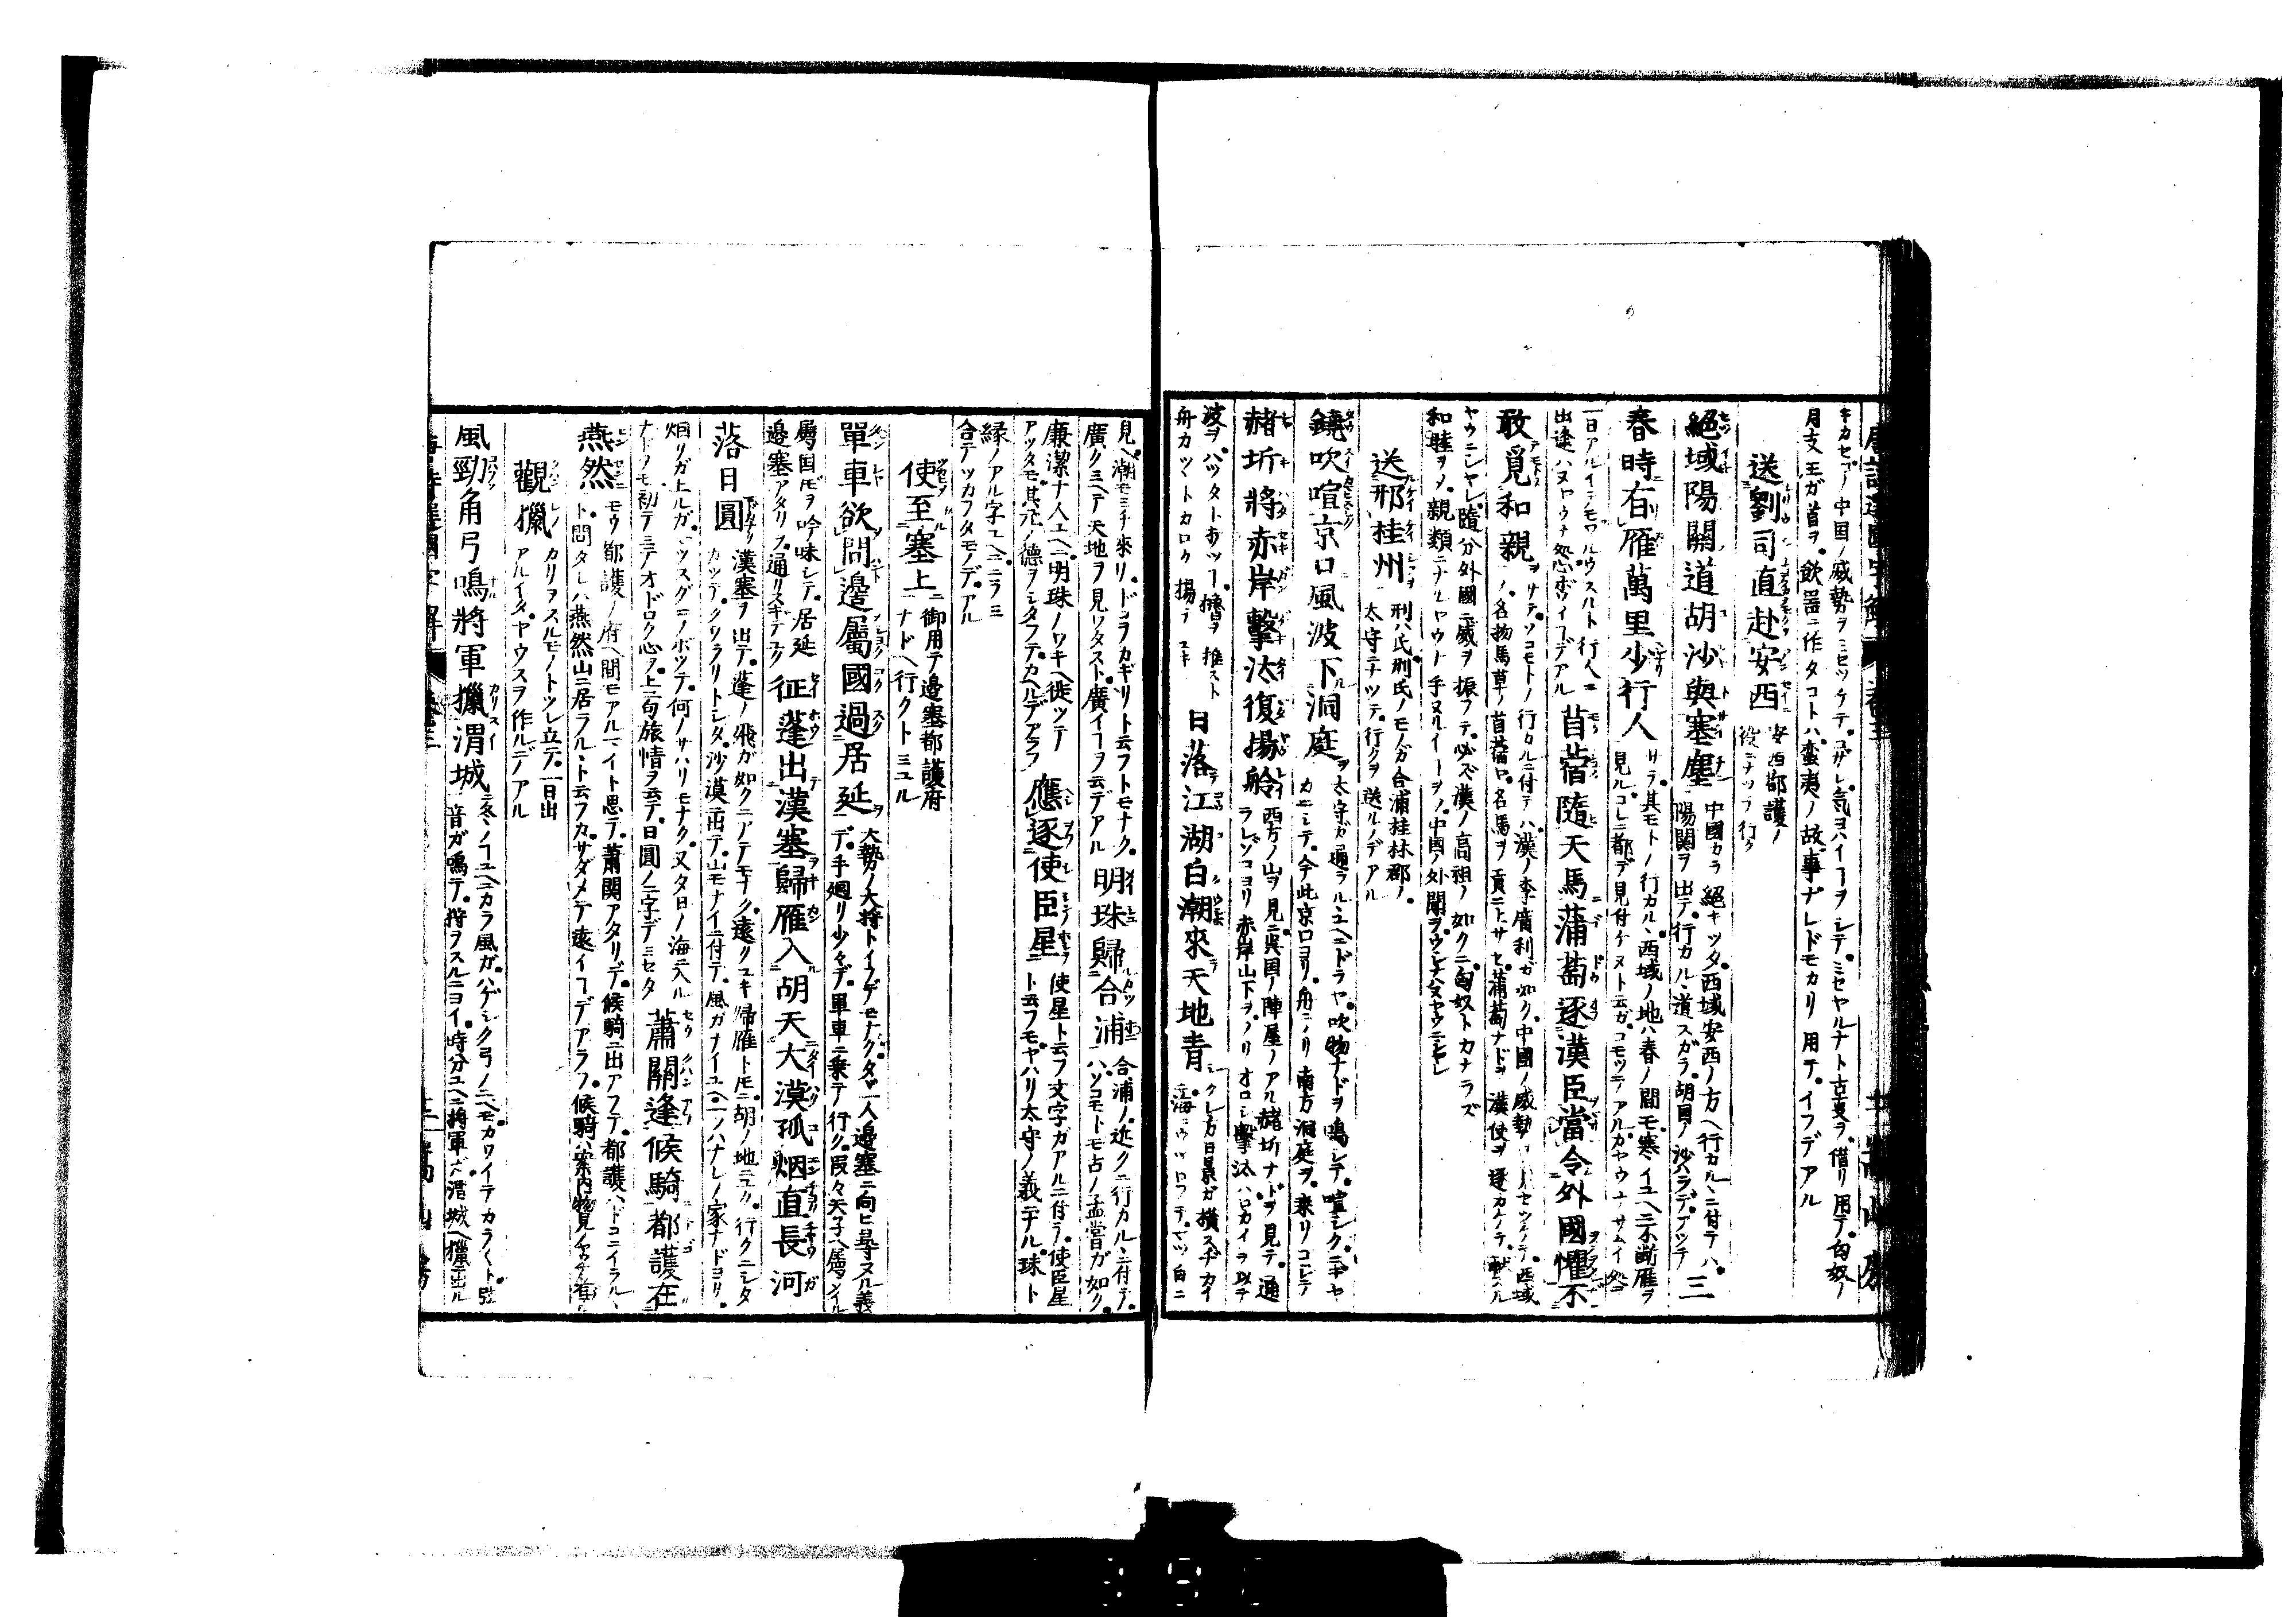 キカセテノ中国ノ威勢ヲミセツケテコザレ気ヨハイヿヲシテミセヤルナト古事ヲ借リ用テ匈奴ノ
月支王ガ首ヲ飲器ニ作タコトハ蛮夷ノ故事ナレドモカリ用テイフデアル
送劉司直赴安西 安西都護ノ
役ニナツテ行ク
絕域陽關道胡沙與塞塵 中國カラ絕キツタ西域安西ノ方ヘ行カルヽニ付テハ
陽関ヲ出テ行カルヽ道スガラ胡國ノ沙ハラデアツテ 三
春時有雁萬里少行人 サラ其モトノ行カルヽ西域ノ地ハ春ノ間モ寒イユヘニ不断雁ヲ
見ルコレニ都デ見付ケヌト云ガコモツテアルカヤウナサムイ処ユ
一日アルイテモワルウスルト行人ニ
出逢ハヌヤウナ処恋イヿデアル 苜蓿隨天馬蒲萄逐漢臣當令外國懼不
敢覓和親 サテソコモトノ行カルニ付テハ漢ノ李廣利ガ如ク中國ノ威勢
ノ名物馬草ノ苜蓿ヤ名馬ヲ貢ニ上サセ蒲萄ナドヲ漢使ヲ逐
ヤウニシヤレ隨分外國ニ威ヲ振フテ必ズ漢ノ高祖ノ如クニ匈奴トカナラズ
和睦ヲノ親類ニナルヤウナ手ヌルイヿヲノ中國ノ外聞ヲウシナハヌヤウニシヤレ
送邢桂州 邢ハ氏邢氏ノモノガ合浦桂林郡ノ
太守ニナツテ行クヲ送ルノデアル
鐃吹喧京口風波下洞庭 太守ガ通ラルユヘニドラヤ吹物ナドヲ鳴シテ喧シクニギヤ
カニシテ今此京口ヨリ舟ニノリ南方洞庭ヲ乗リコシテ
赭圻將赤岸擊汰復揚舲 西方ノ山ヲ見ニ呉国ノ陣屋ノアル赭圻ナドヲ見テ通
ラレソコヨリ赤岸山下ヲノリオロシ擊汰ハロカイヲ以テ
波ヲハツタトウツヿ 揚ヲ推スト
舟カツヽトカロク揚ラユキ 日落江湖白潮來天地青 クレ方日景ガ横スヂカイ
ニ海ニウツロフテマツ白ニ
見ヘ潮モミチ來リドコヲカギリト云フトモナク
廣クミヘテ天地ヲ見ワタスト廣イヿヲ云デアル 明珠歸合浦 合浦ノ近クニ行カルヽニ付テ
ハソコモトモ古ノ孟嘗ガ如ク
廉潔ナ人ユヘニ明珠ノワキヘ徙ツテ
アツタモ其元ノ德ヲシタフテカヘルデアラフ 應逐使臣星 使星ト云フ文字ガアルニ付ラ使臣星
ト云フモヤハリ太守ノ義ニナル珠ト
縁ノアル字ユヘニニラミ
合テツカフタモノデアル
使至塞上 御用テ邊塞都護府
ナドヘ行クトミユル
單車欲問邊屬國過居延 大勢ノ大将トイフデモナクタヾ一人邊塞ニ向ヒ尋ヌル義
デ手廻リ少々デ單車ニ乗テ行ク段々天子ヘ屬シイル
屬国ドモヲ吟味シテ居延
邊塞アタリヲ通リスギテユク 征蓬出漢塞歸雁入胡天大漠孤烟直長河
落日圓 漢塞ヲ出テ蓬ノ飛ガ如クニアテモナク遠クユキ歸雁トモニ胡ノ地ニ入行クニシタ
カツテクリラリトシタ沙漠ニ出テ山モナイニ付テ風ガナイユヘ一ツハナレノ家ナドヨリ
烟リガ上ルガマツスグニノボツテ何ノサハリモナク又夕日ノ海ニ入ル
ナドヲモ初テミテオドロク心ヲ上二句旅情ヲ云テ日圓ノ二字デミセタ 蕭關逢候騎都護在
燕然 モウ都護ノ府ヘ間モアルマイト思テ蕭関アタリデ候騎ニ出アフテ都護ハドコニイラルヽ
ト問タレハ燕然山ニ居ラルヽト云フカサダメテ遠イヿデアラフ候騎ハ案内物見
觀獵 カリヲスルモノトツレ立テ一日出
アルイタヤウスヲ作ルデノアル
風勁角弓鳴將軍獵渭城 冬ノヿユヘニカラ風ガハゲシク弓ノニヘモカワイテカラ〱ト弦
音ガ鳴テ狩ヲスルニヨイ時分ユヘニ將軍ガ渭城ヘ獵ニ出ル